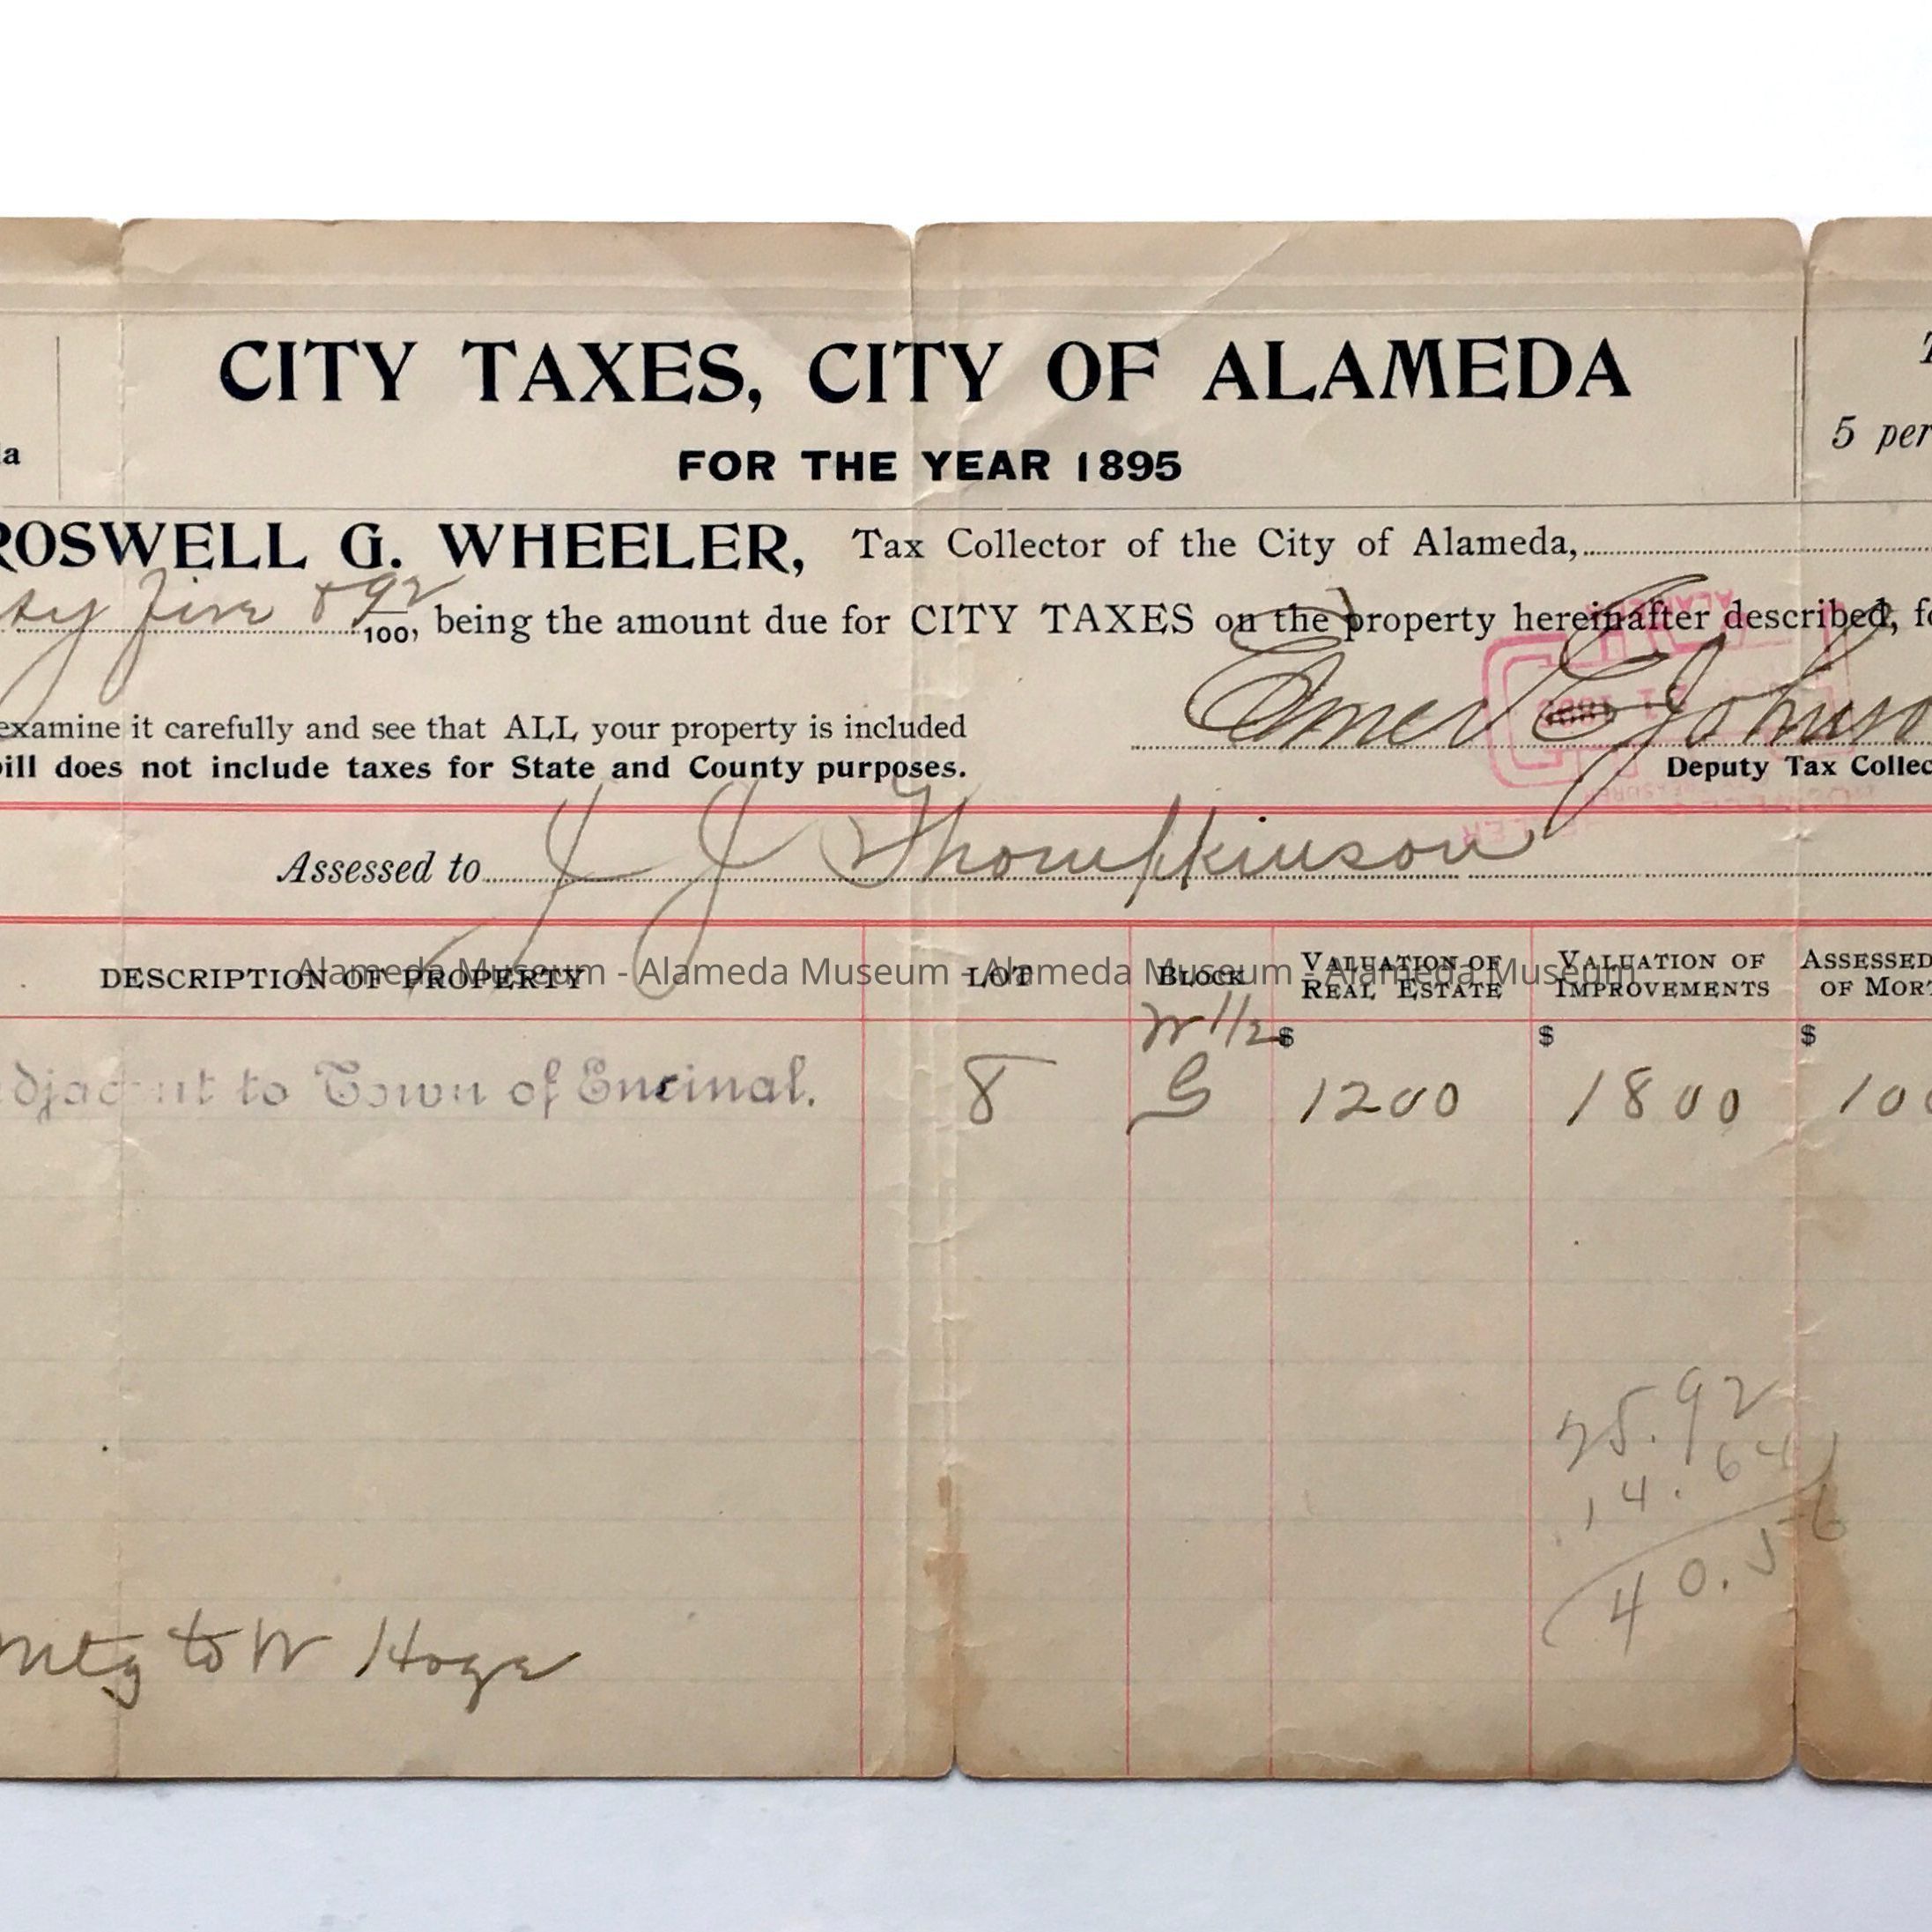 CITY TAXES, CITY OF ALAMEDA
FOR THE YEAR 1895
5 per
ROSWELL G. WHEELER, Tax Collector of the City of Alameda,
five & 92/100, being the amount due for CITY TAXES on the property hereinafter described, fo
examine it carefully and see that ALL your property is included
bill does not include taxes for State and County purposes.
Elmer E Johnson
Deputy Tax Collec
Assessed to J J Thompkinson
DESCRIPTION OF PROPERTY LOT BLOCK VALUATION OF REAL ESTATE VALUATION OF IMPROVEMENTS ASSESSED OF MORT
Alameda Museum - Alameda Museum - Alameda Museum - Alameda Museum
W 1/2 $ $ $
adjacent to Town of Encinal. 8 G 1200 1800 100
25.92
14.64
40.56
Mtg to W Hoge